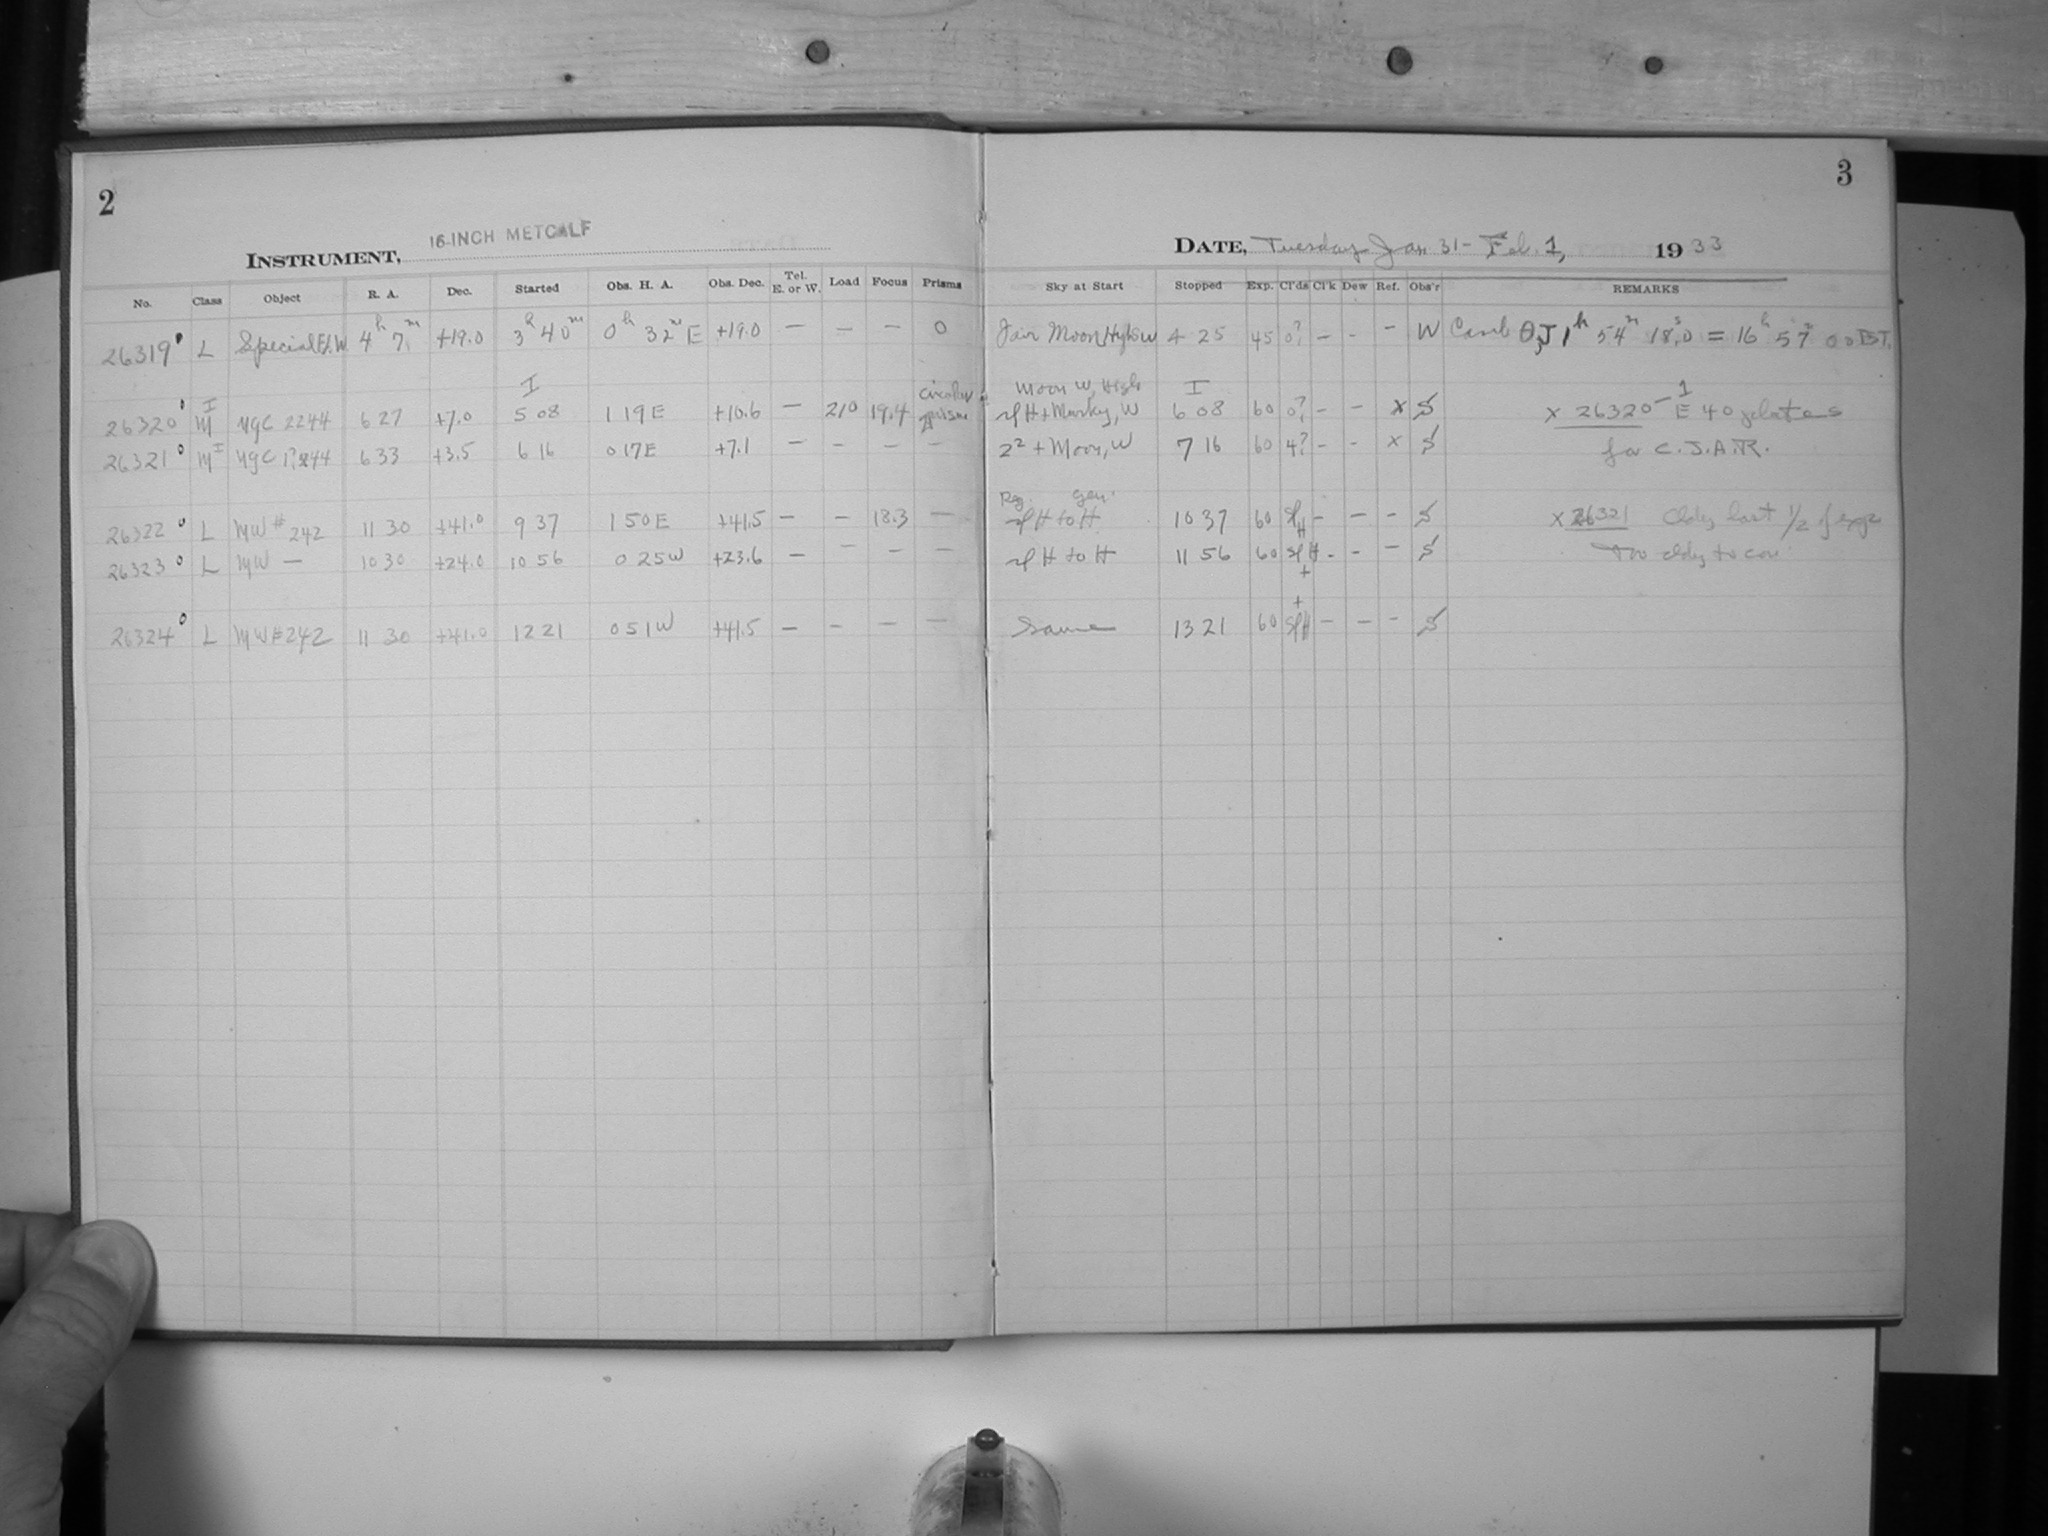 2
16-INCH METCALF
INSTRUMENT,
No. Class Object R. A. Dec. Started Obs. H. A. Obs. Dec. Tel. E. or W. Load Focus Prisms
26319 L Special 4h 7m +19.0 3h 40m 0h 32m E +19.0 — — — 0
I
I circular
26320 M NGC 2244 6 27 +7.0 5 08 1 19 E +10.6 — 210 19.4 prism
26321 M I NGC 6 33 +3.5 6 16 0 17 E +7.1 — — — —
26322 L MW #242 11 30 +41.0 9 37 1 50 E +41.5 — — 18.3 —
26323 L MW — 10 30 +24.0 10 56 0 25 W +23.6 — — — —
26324 L MW #242 11 30 +41.0 12 21 0 51 W +41.5 — — — —
3
DATE, Tuesday Jan 31 - Feb. 1, 1933
Sky at Start Stopped Exp. Cl'ds Cl'k Dew Ref. Obs'r REMARKS
Fair Moon High W 4 25 45 0? — - - W Camb 1h 54m 18s.0 = 16h 57m 00
Moon W, High I
H + Murky, W 6 08 60 0? - — x S x 26320 — 1 E 40 plates
2² + Moon, W 7 16 60 4? - - x S for C.J.A.R.
Reg. Gen.
H to H 10 37 60 - — - S x 26321 Cldy last 1/2 of exp
H to H 11 56 60 - - - S Too cldy to con
+
+
Same 13 21 60 — — - S